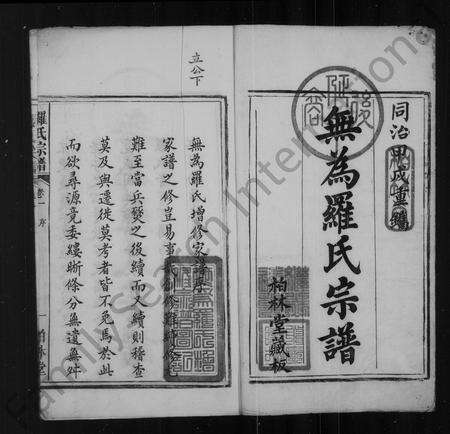 同治甲戌重鐫
無為羅氏宗譜
柏林堂藏板
立公下
無為羅氏增修家譜序
家譜之修豈易事哉創修難續修
難至當兵燹之後續而又續則稽查
莫及與遷徙莫考者皆不免焉於此
而欲尋源竟委縷晰條分無遺無舛
羅氏宗譜
卷一
序
一
柏林堂
FamilySearch International